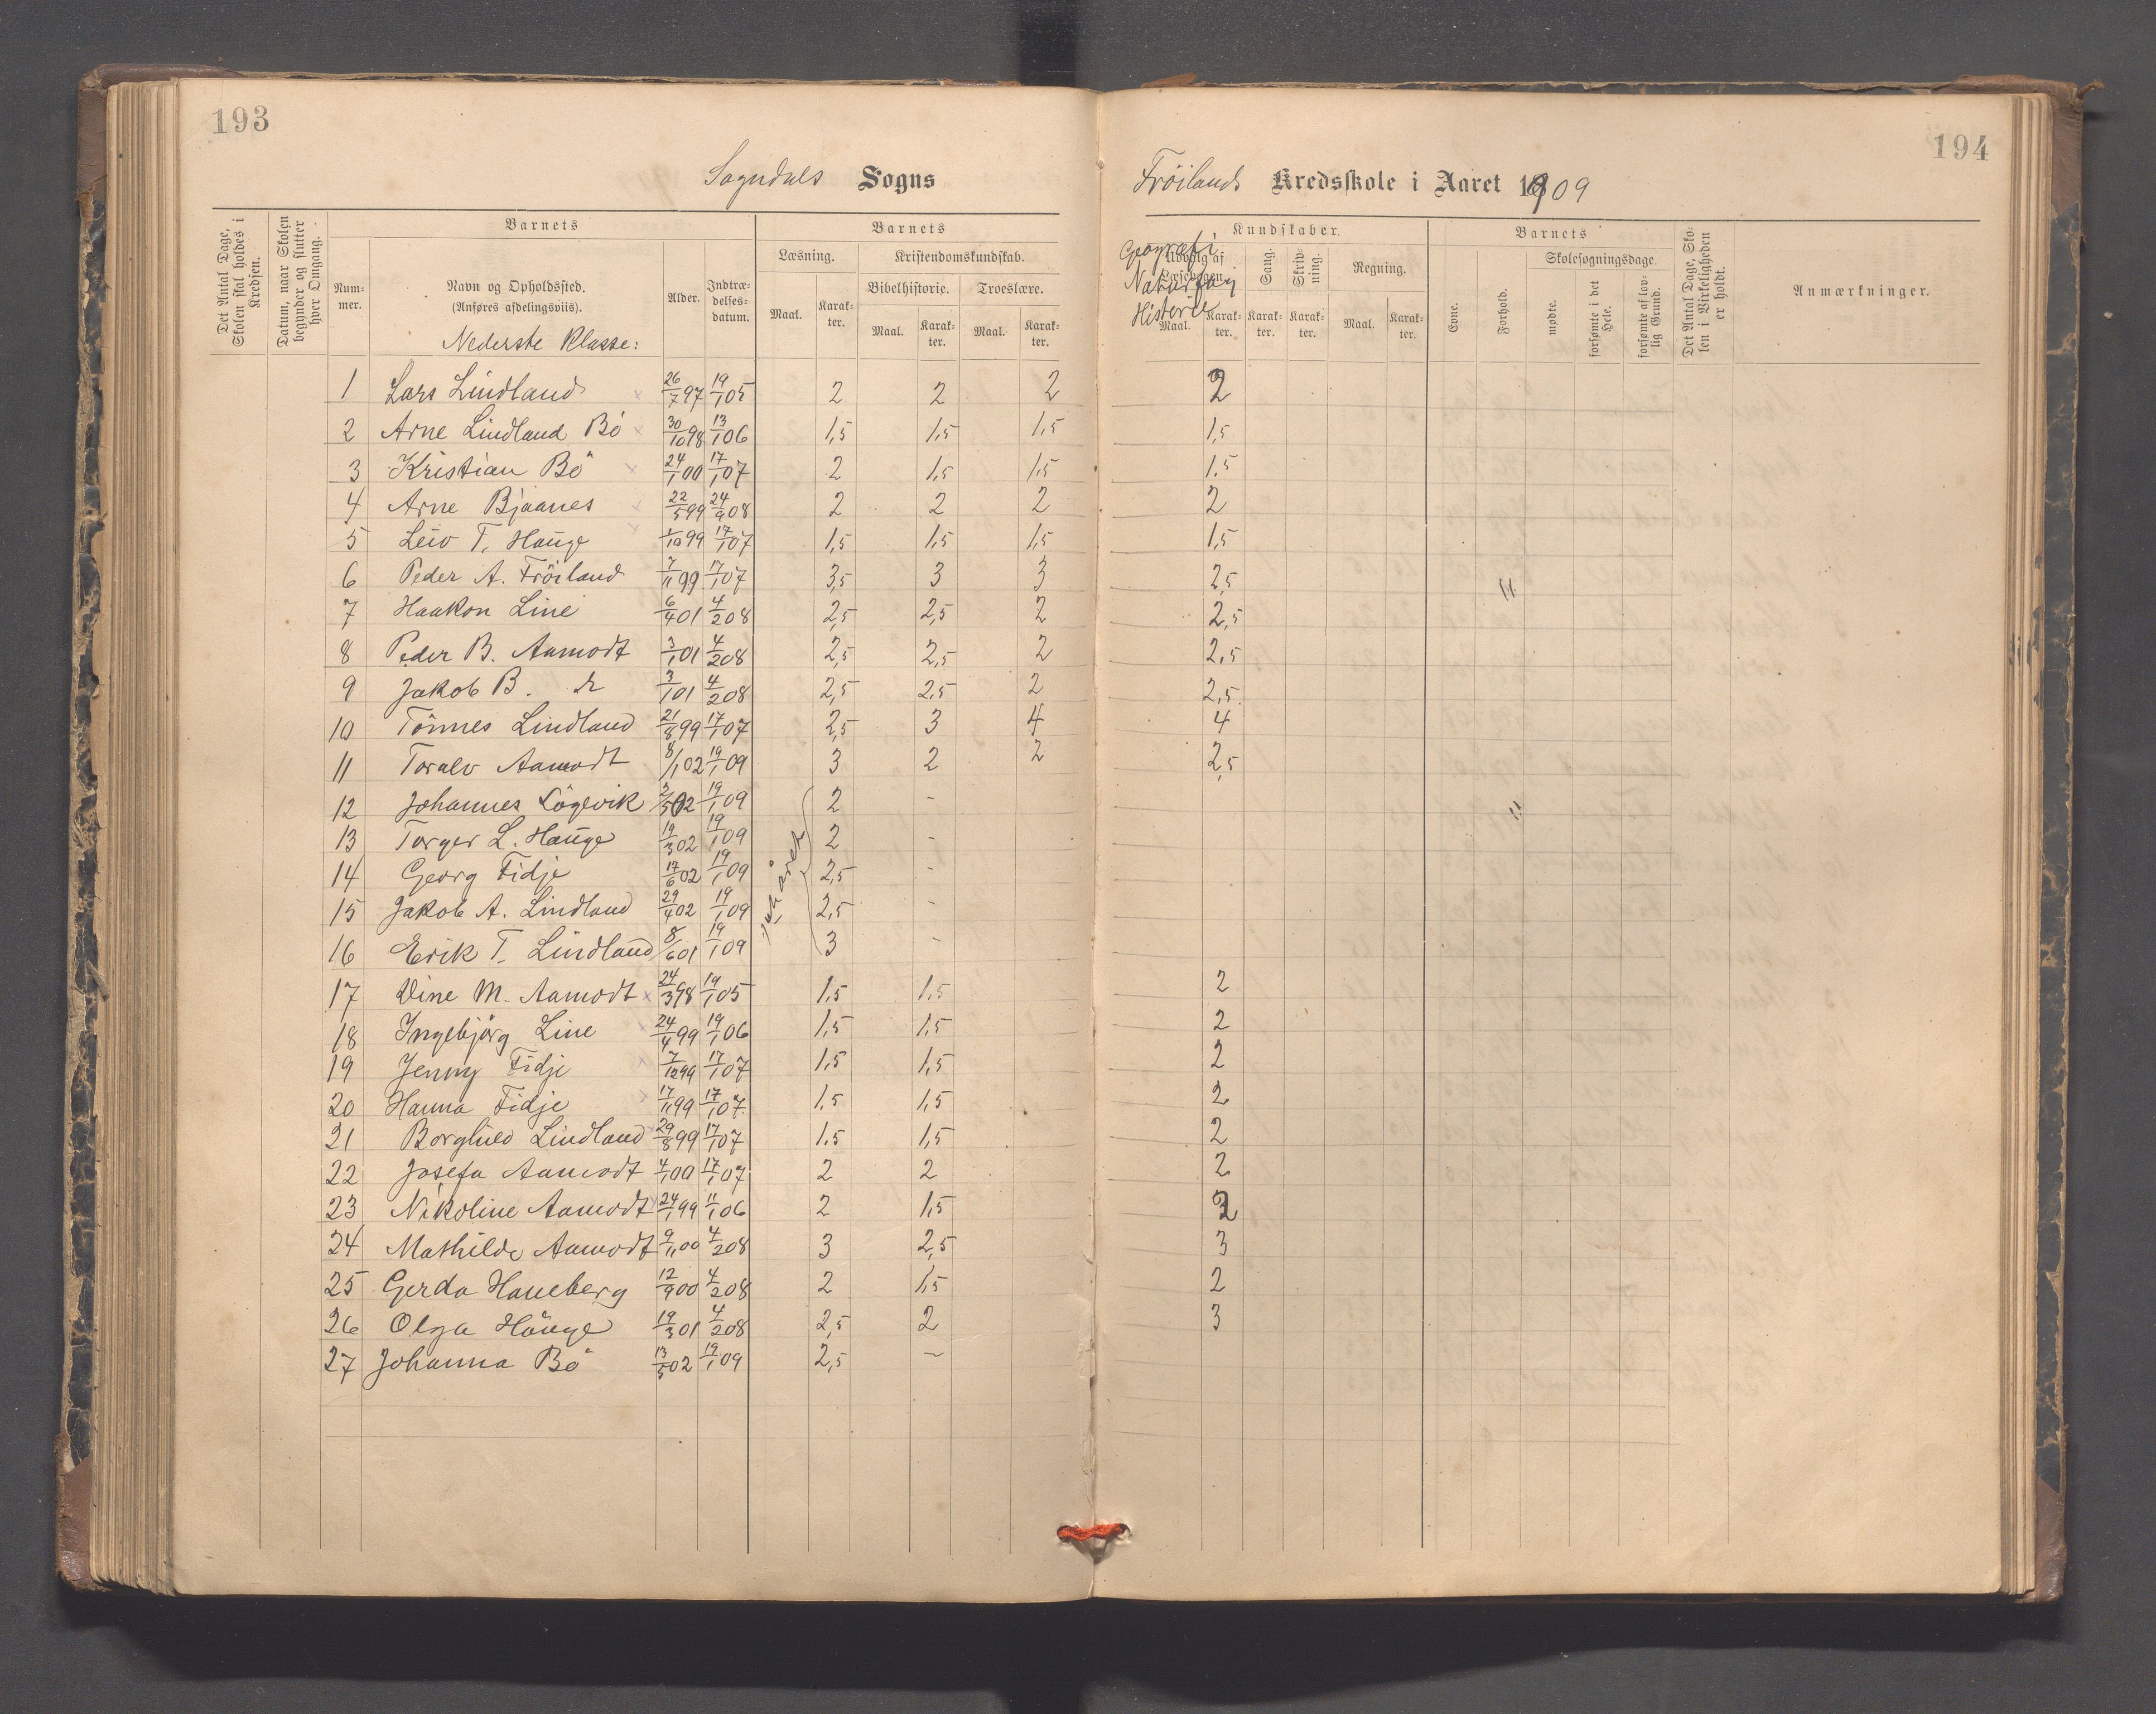 193
194
Sogndals Sogns
Fröilands Kredsskole i Aaret 1909
Det Antal Dage, Skolen skal holdes i Kredsen.
Datum, naar Skolen begynder og slutter hver Omgang.
Num- mer.
Barnets
Navn og Opholdssted.
(Anføres afdelingsviis).
Alder.
Indtræ- delses- datum.
Barnets
Læsning.
Maal.
Karak- ter.
Kristendomskundskab.
Bibelhistorie.
Maal.
Karak- ter.
Troeslære.
Maal.
Karak- ter.
Kundskaber.
Geografi
Naturfag
Historie
Udvalg af Læsebogen.
Maal.
Karak- ter.
Sang.
Karak- ter.
Skriv- ning.
Karak- ter.
Regning.
Maal.
Karak- ter.
Barnets
Evne.
Forhold.
Skolesøgningsdage
mødte.
forsømte i det Hele.
forsømte af lov- lig Grund.
Det Antal Dage, Sko- len i Virkeligheden er holdt.
Anmærkninger.
Nederste Klasse:
1 Lars Lindland 26/7 97 19/1 05 2 2 2 2
2 Arne Lindland Bö 30/10 98 13/1 06 1,5 1,5 1,5 1,5
3 Kristian Bö 24/1 00 17/1 07 2 1,5 1,5 1,5
4 Arne Bjaanes 22/5 99 24/9 08 2 2 2 2
5 Leiv T. Hauge 1/10 99 17/1 07 1,5 1,5 1,5 1,5
6 Peder A. Fröiland 7/11 99 17/1 07 3,5 3 3 2,5 "
7 Haakon Line 6/4 01 4/2 08 2,5 2,5 2 2,5
8 Peder B. Aamodt 3/1 01 4/2 08 2,5 2,5 2 2,5
9 Jakob B. 3/1 01 4/2 08 2,5 2,5 2 2,5
10 Tönnes Lindland 21/8 99 17/1 07 2,5 3 4 4
11 Toralv Aamodt 8/1 02 19/1 09 3 2 2 2,5
12 Johannes Lögevik 2/5 02 19/1 09 2 - "
13 Torger L. Hauge 19/3 02 19/1 09 2 -
14 Georg Fidje 17/6 02 19/1 09 2,5 -
15 Jakob A. Lindland 29/4 02 19/1 09 2,5 -
16 Erik T. Lindland 8/6 01 19/1 09 3 -
17 Vine M. Aamodt x 24/3 98 19/1 05 1,5 1,5 2
18 Ingebjörg Line 24/4 99 19/1 06 1,5 1,5 2
19 Jenny Fidje 7/12 99 17/1 07 1,5 1,5 2
20 Hanna Fidje 17/11 99 17/1 07 1,5 1,5 2
21 Borghild Lindland 29/8 99 17/1 07 1,5 1,5 2
22 Josefa Aamodt 4/1 00 17/1 07 2 2 2
23 Nikoline Aamodt 24/1 99 11/1 06 2 1,5 2
24 Mathilde Aamodt 9/11 00 4/2 08 3 2,5 3
25 Gerda Haneberg 12/9 00 4/2 08 2 1,5 2
26 Olga Hauge 19/3 01 4/2 08 2,5 2 3
27 Johanna Bö 13/5 02 19/1 09 2,5 -